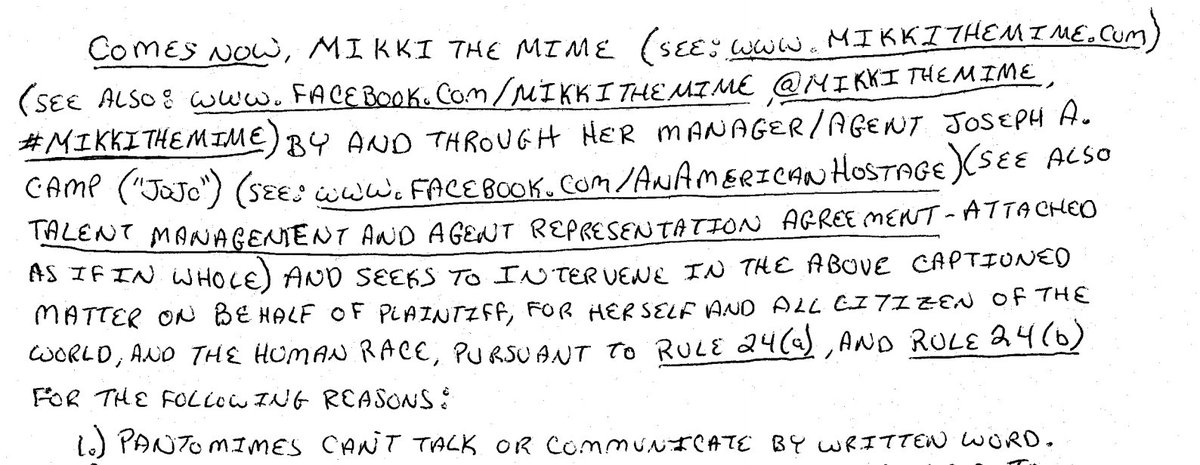 COMES NOW, MIKKI THE MIME (SEE: WWW.MIKKITHEMIME.COM)
(SEE ALSO: WWW.FACEBOOK.COM/MIKKITHEMIME, @MIKKITHEMIME,
#MIKKITHEMIME) BY AND THROUGH HER MANAGER/AGENT JOSEPH A.
CAMP ("JOJO") (SEE: WWW.FACEBOOK.COM/ANAMERICANHOSTAGE)(SEE ALSO
TALENT MANAGEMENT AND AGENT REPRESENTATION AGREEMENT - ATTACHED
AS IF IN WHOLE) AND SEEKS TO INTERVENE IN THE ABOVE CAPTIONED
MATTER ON BEHALF OF PLAINTIFF, FOR HERSELF AND ALL CITIZEN OF THE
WORLD, AND THE HUMAN RACE, PURSUANT TO RULE 24(a), AND RULE 24(b)
FOR THE FOLLOWING REASONS:
1.) PANTOMIMES CAN'T TALK OR COMMUNICATE BY WRITTEN WORD.